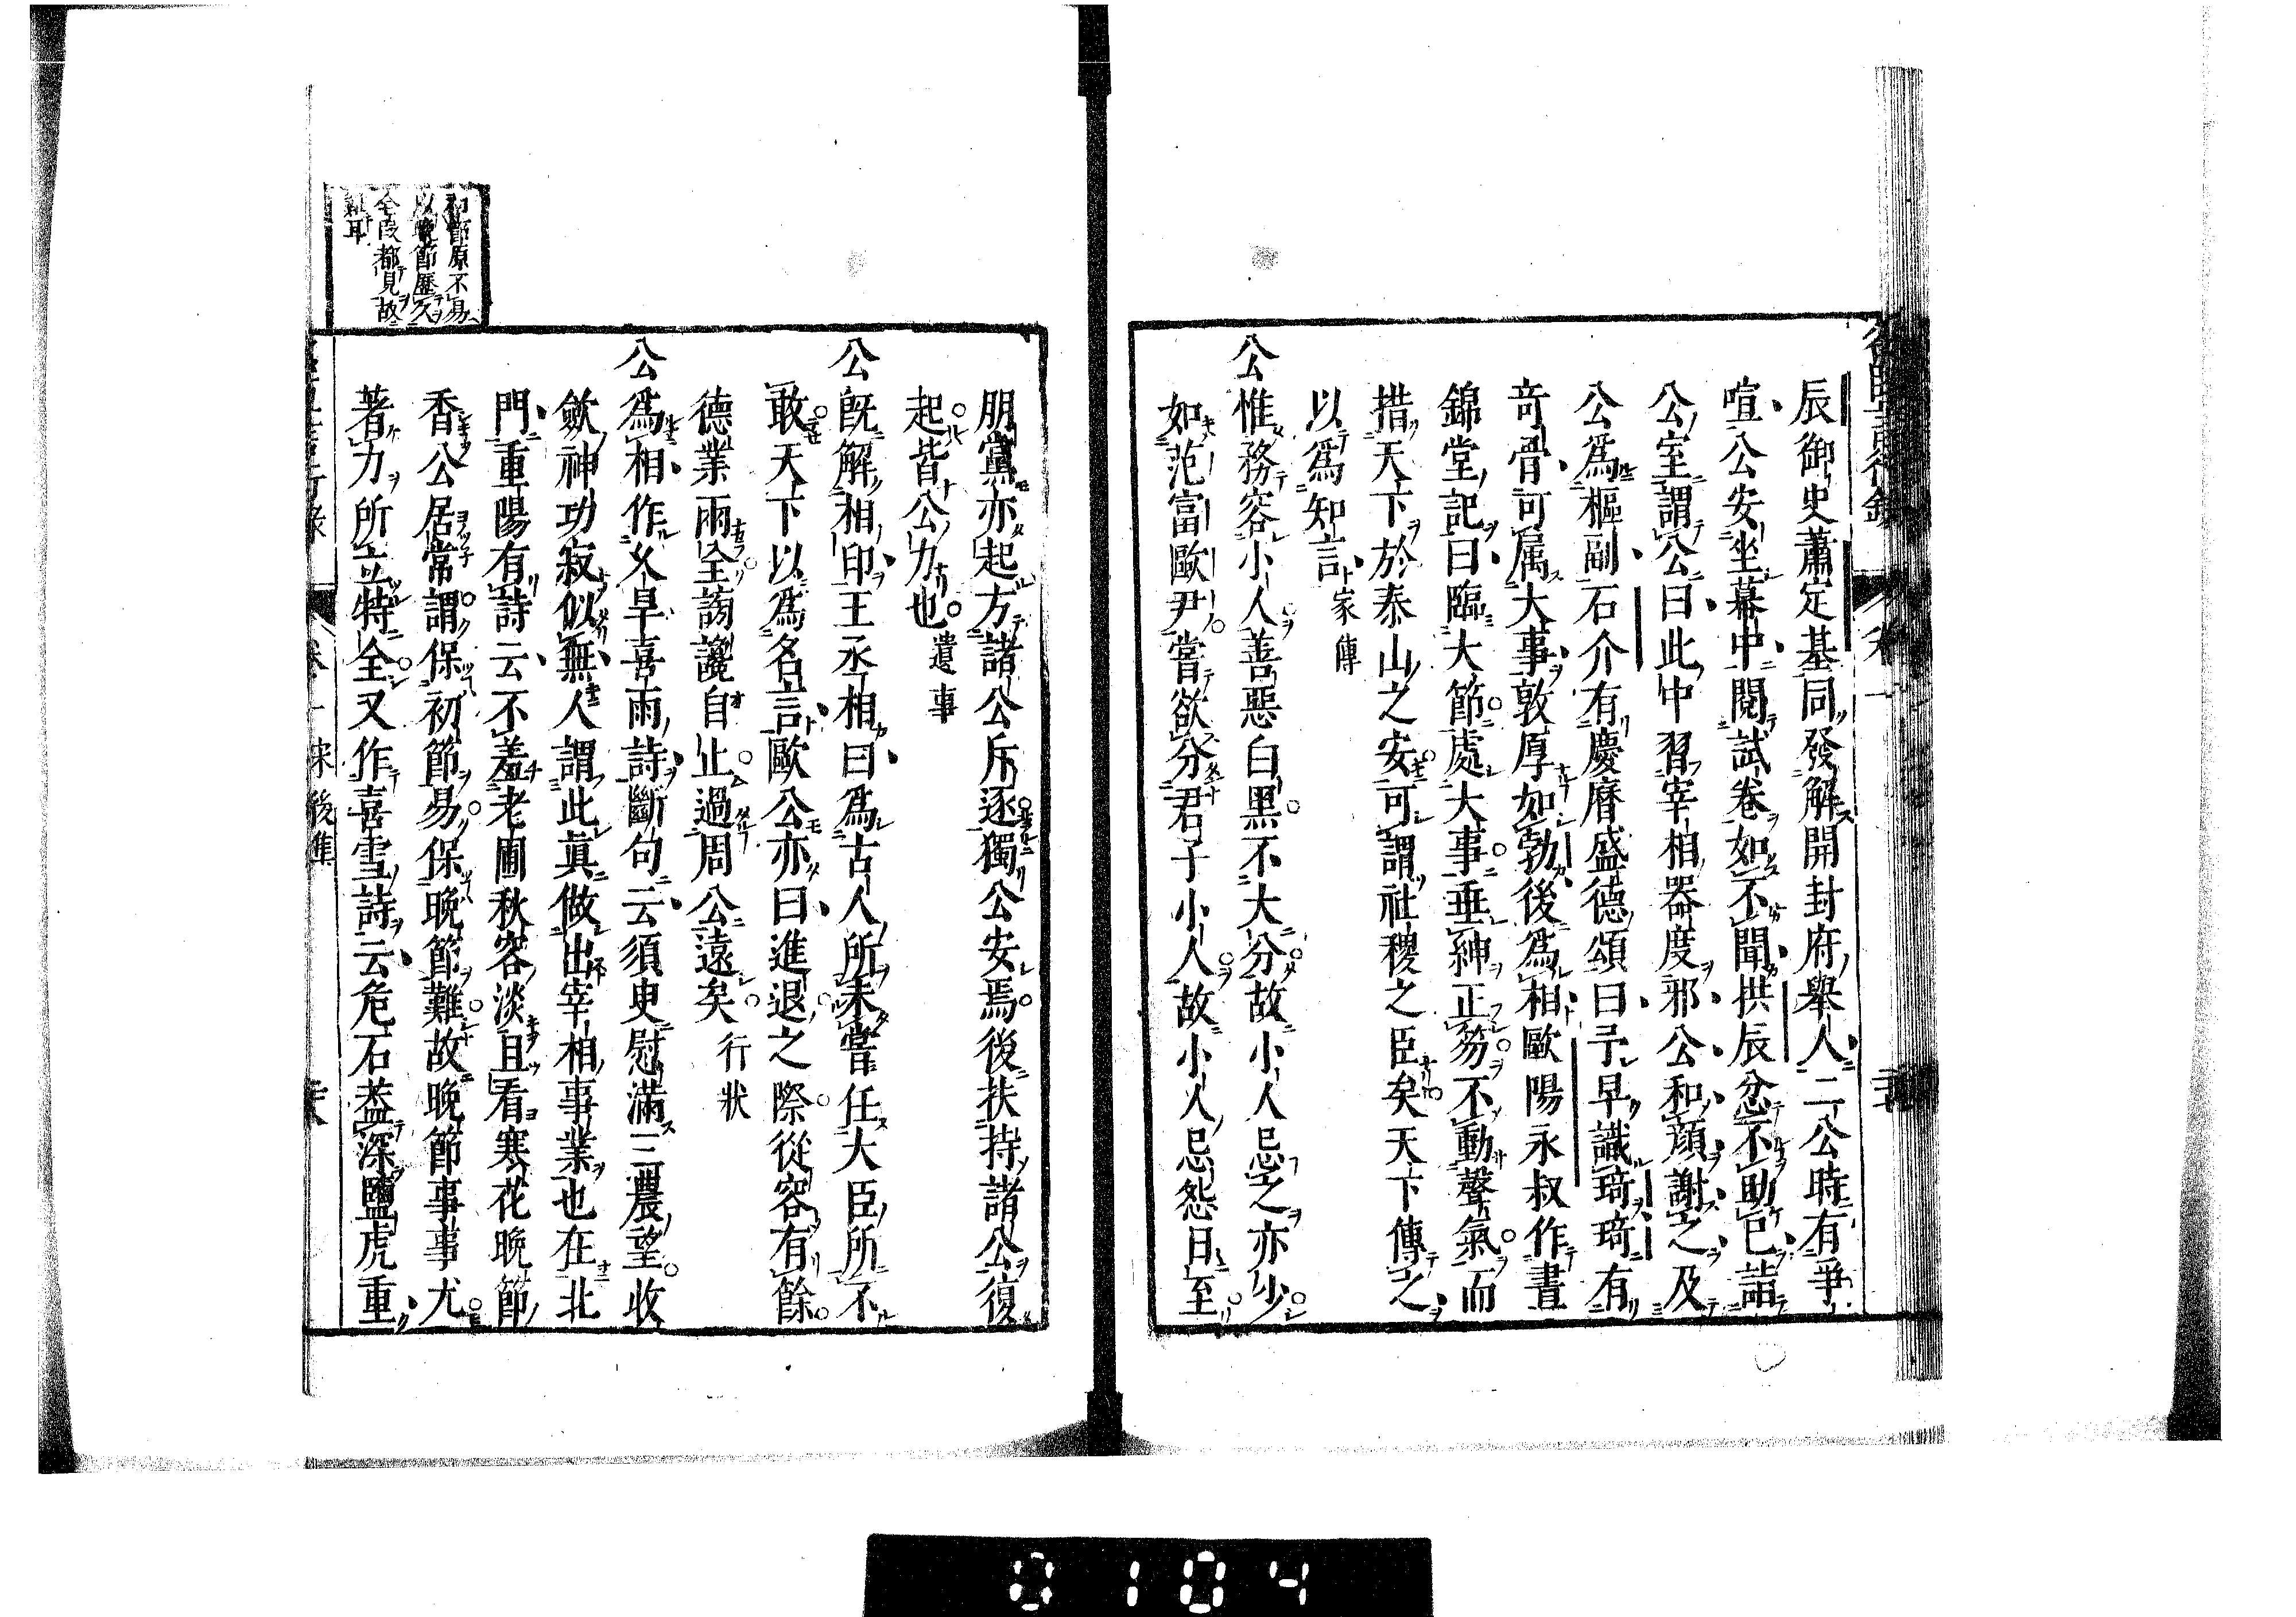 辰御史蕭定基同發解開封府舉人二公時有爭
喧公安坐幕中閱試卷如不聞拱辰忿不助已詣
公室謂公曰此中習宰相器度邪公和顔謝之及
公爲樞副石介有慶曆盛德頌曰予早識琦琦有
竒骨可属大事敦厚如勃後爲相歐陽永叔作晝
錦堂記曰臨大節處大事垂紳正笏不動聲氣而
措天下於泰山之安可謂社稷之臣矣天下傳之
以爲知言家傳
公惟務容小人善惡白黒不大分故小人忌之亦少
如范富歐尹嘗欲分君子小人故小人忌怨日至
朋黨亦起方諸公斥逐獨公安焉後扶持諸公復
起皆公力也遺事
公既解相印王丞相曰爲古人所未嘗任大臣所不
敢天下以爲名言歐公亦曰進退之際從容有餘
德業兩全謗讒自止過周公遠矣行狀
公爲相作久旱喜雨詩斷句云須臾慰滿三農望收
斂神功寂似無人謂此真做出宰相事業也在北
門重陽有詩云不羞老圃秋容淡且看寒花晩節
香公居常謂保初節易保晩節難故晩節事事尤
著力所立特全又作喜雪詩云危石盖深鹽虎重
初節原不易
以晩節歷久
全段都見故
難耳
0104